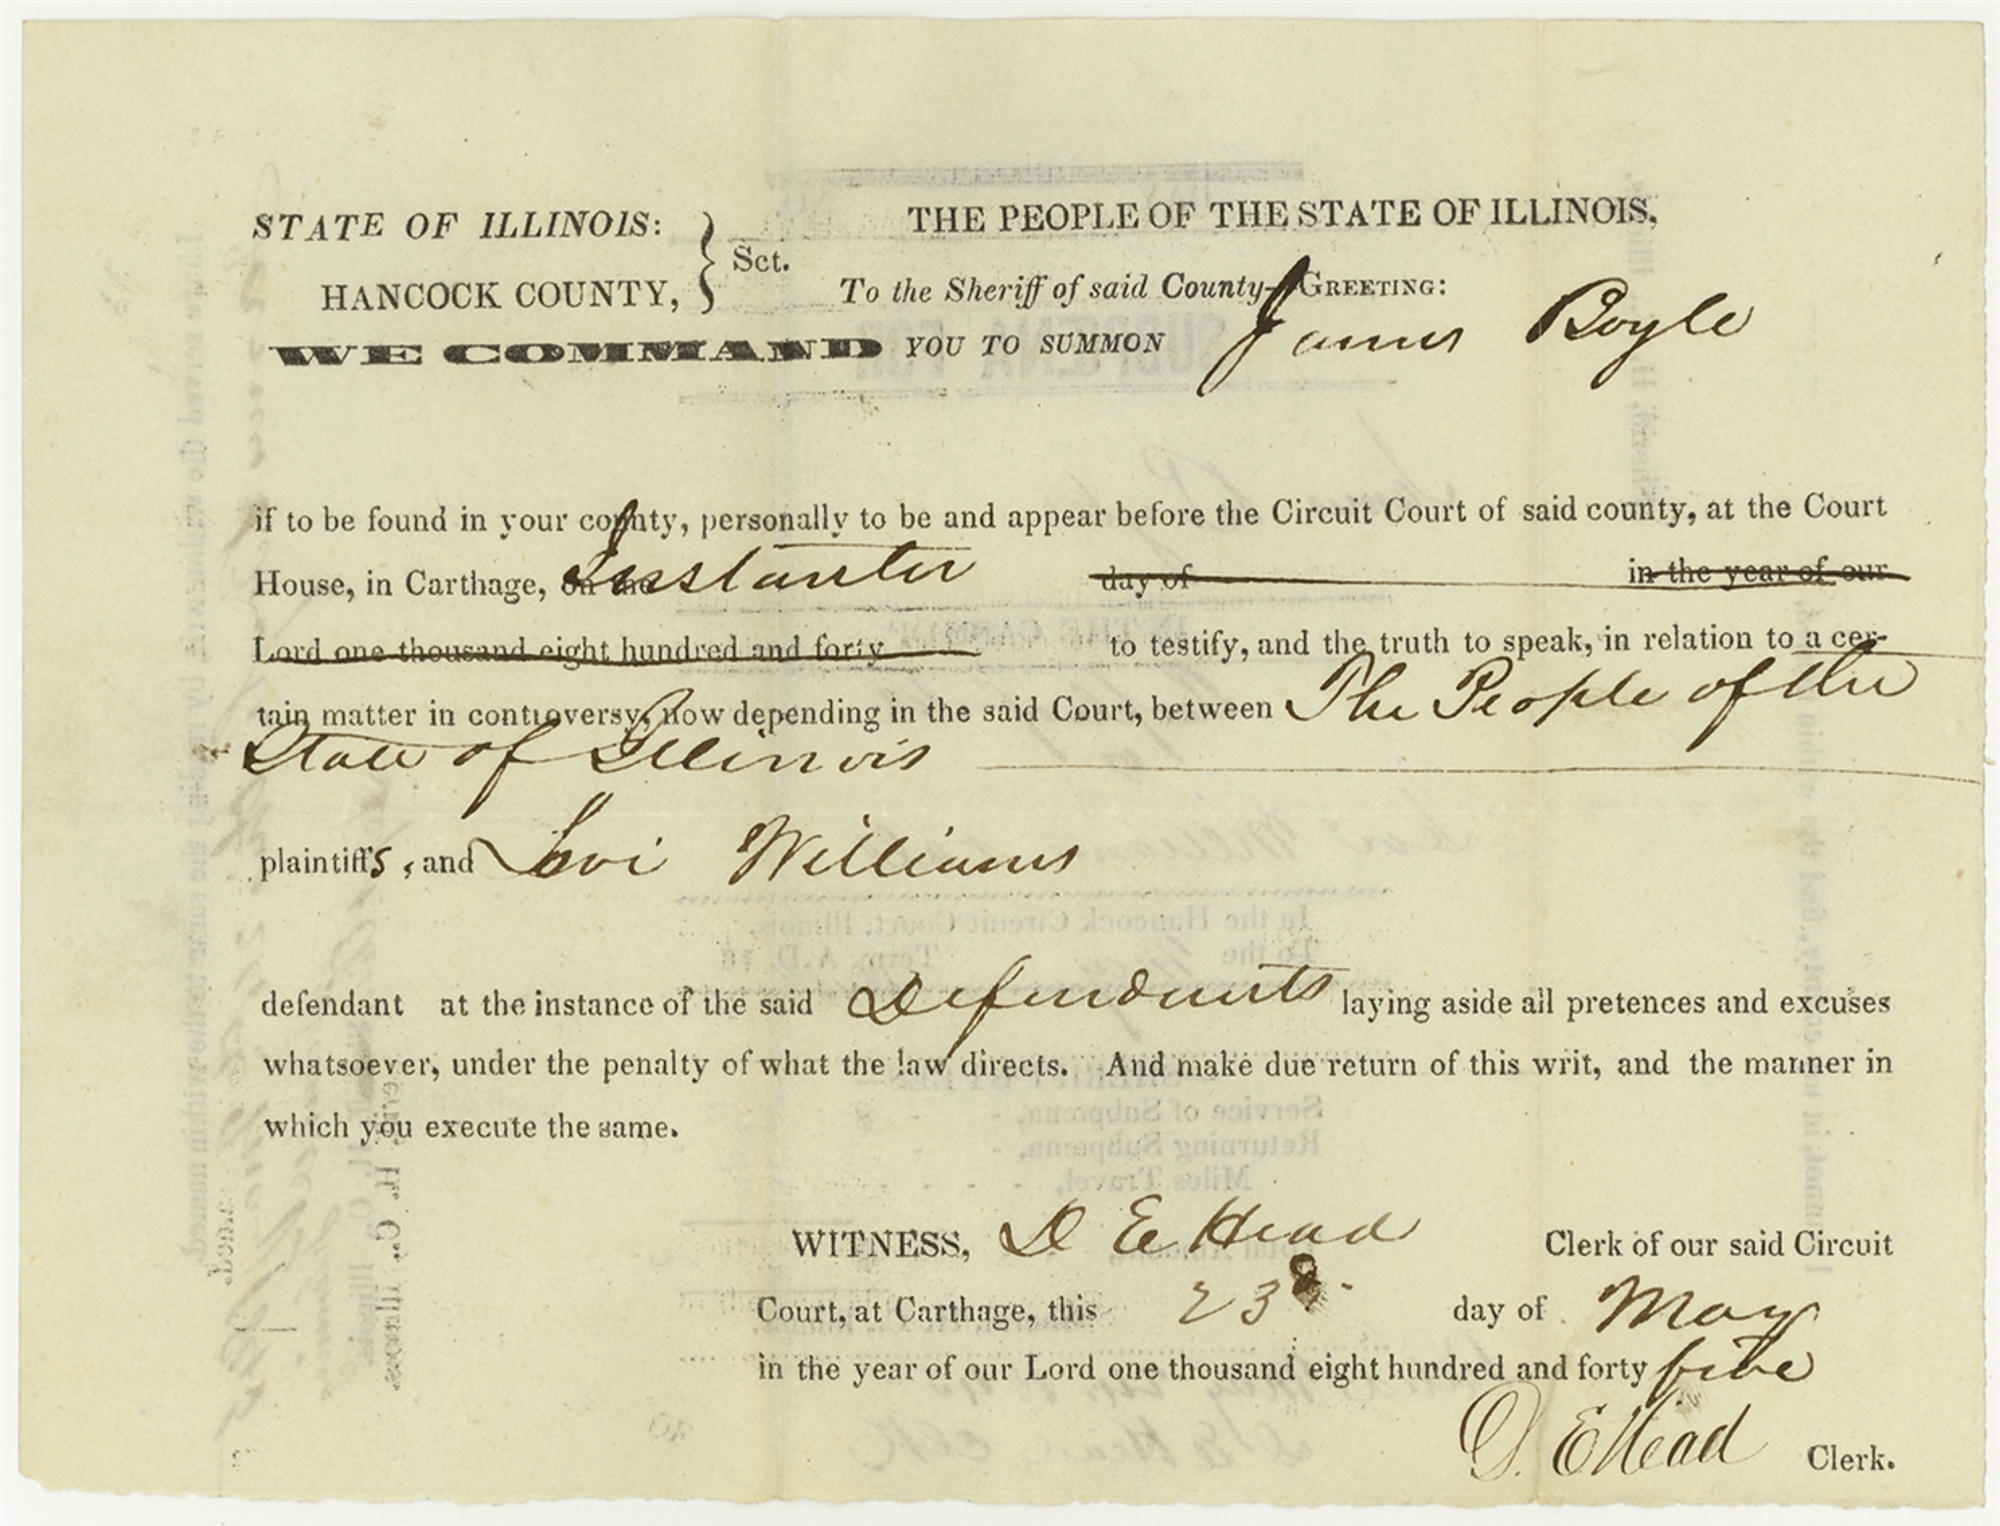 STATE OF ILLINOIS:
HANCOCK COUNTY,
Sct.
THE PEOPLE OF THE STATE OF ILLINOIS,
To the Sheriff of said County—GREETING:
WE COMMAND YOU TO SUMMON James Boyle
if to be found in your county, personally to be and appear before the Circuit Court of said county, at the Court
House, in Carthage, on the Instanter day of in the year of our
Lord one thousand eight hundred and forty to testify, and the truth to speak, in relation to a cer-
tain matter in controversy, now depending in the said Court, between The People of the
State of Illinois
plaintiffs, and Levi Williams
defendant at the instance of the said Defendants laying aside all pretences and excuses
whatsoever, under the penalty of what the law directs. And make due return of this writ, and the manner in
which you execute the same.
WITNESS, D E Head Clerk of our said Circuit
Court, at Carthage, this 23d day of May
in the year of our Lord one thousand eight hundred and forty five
D. E Head Clerk.